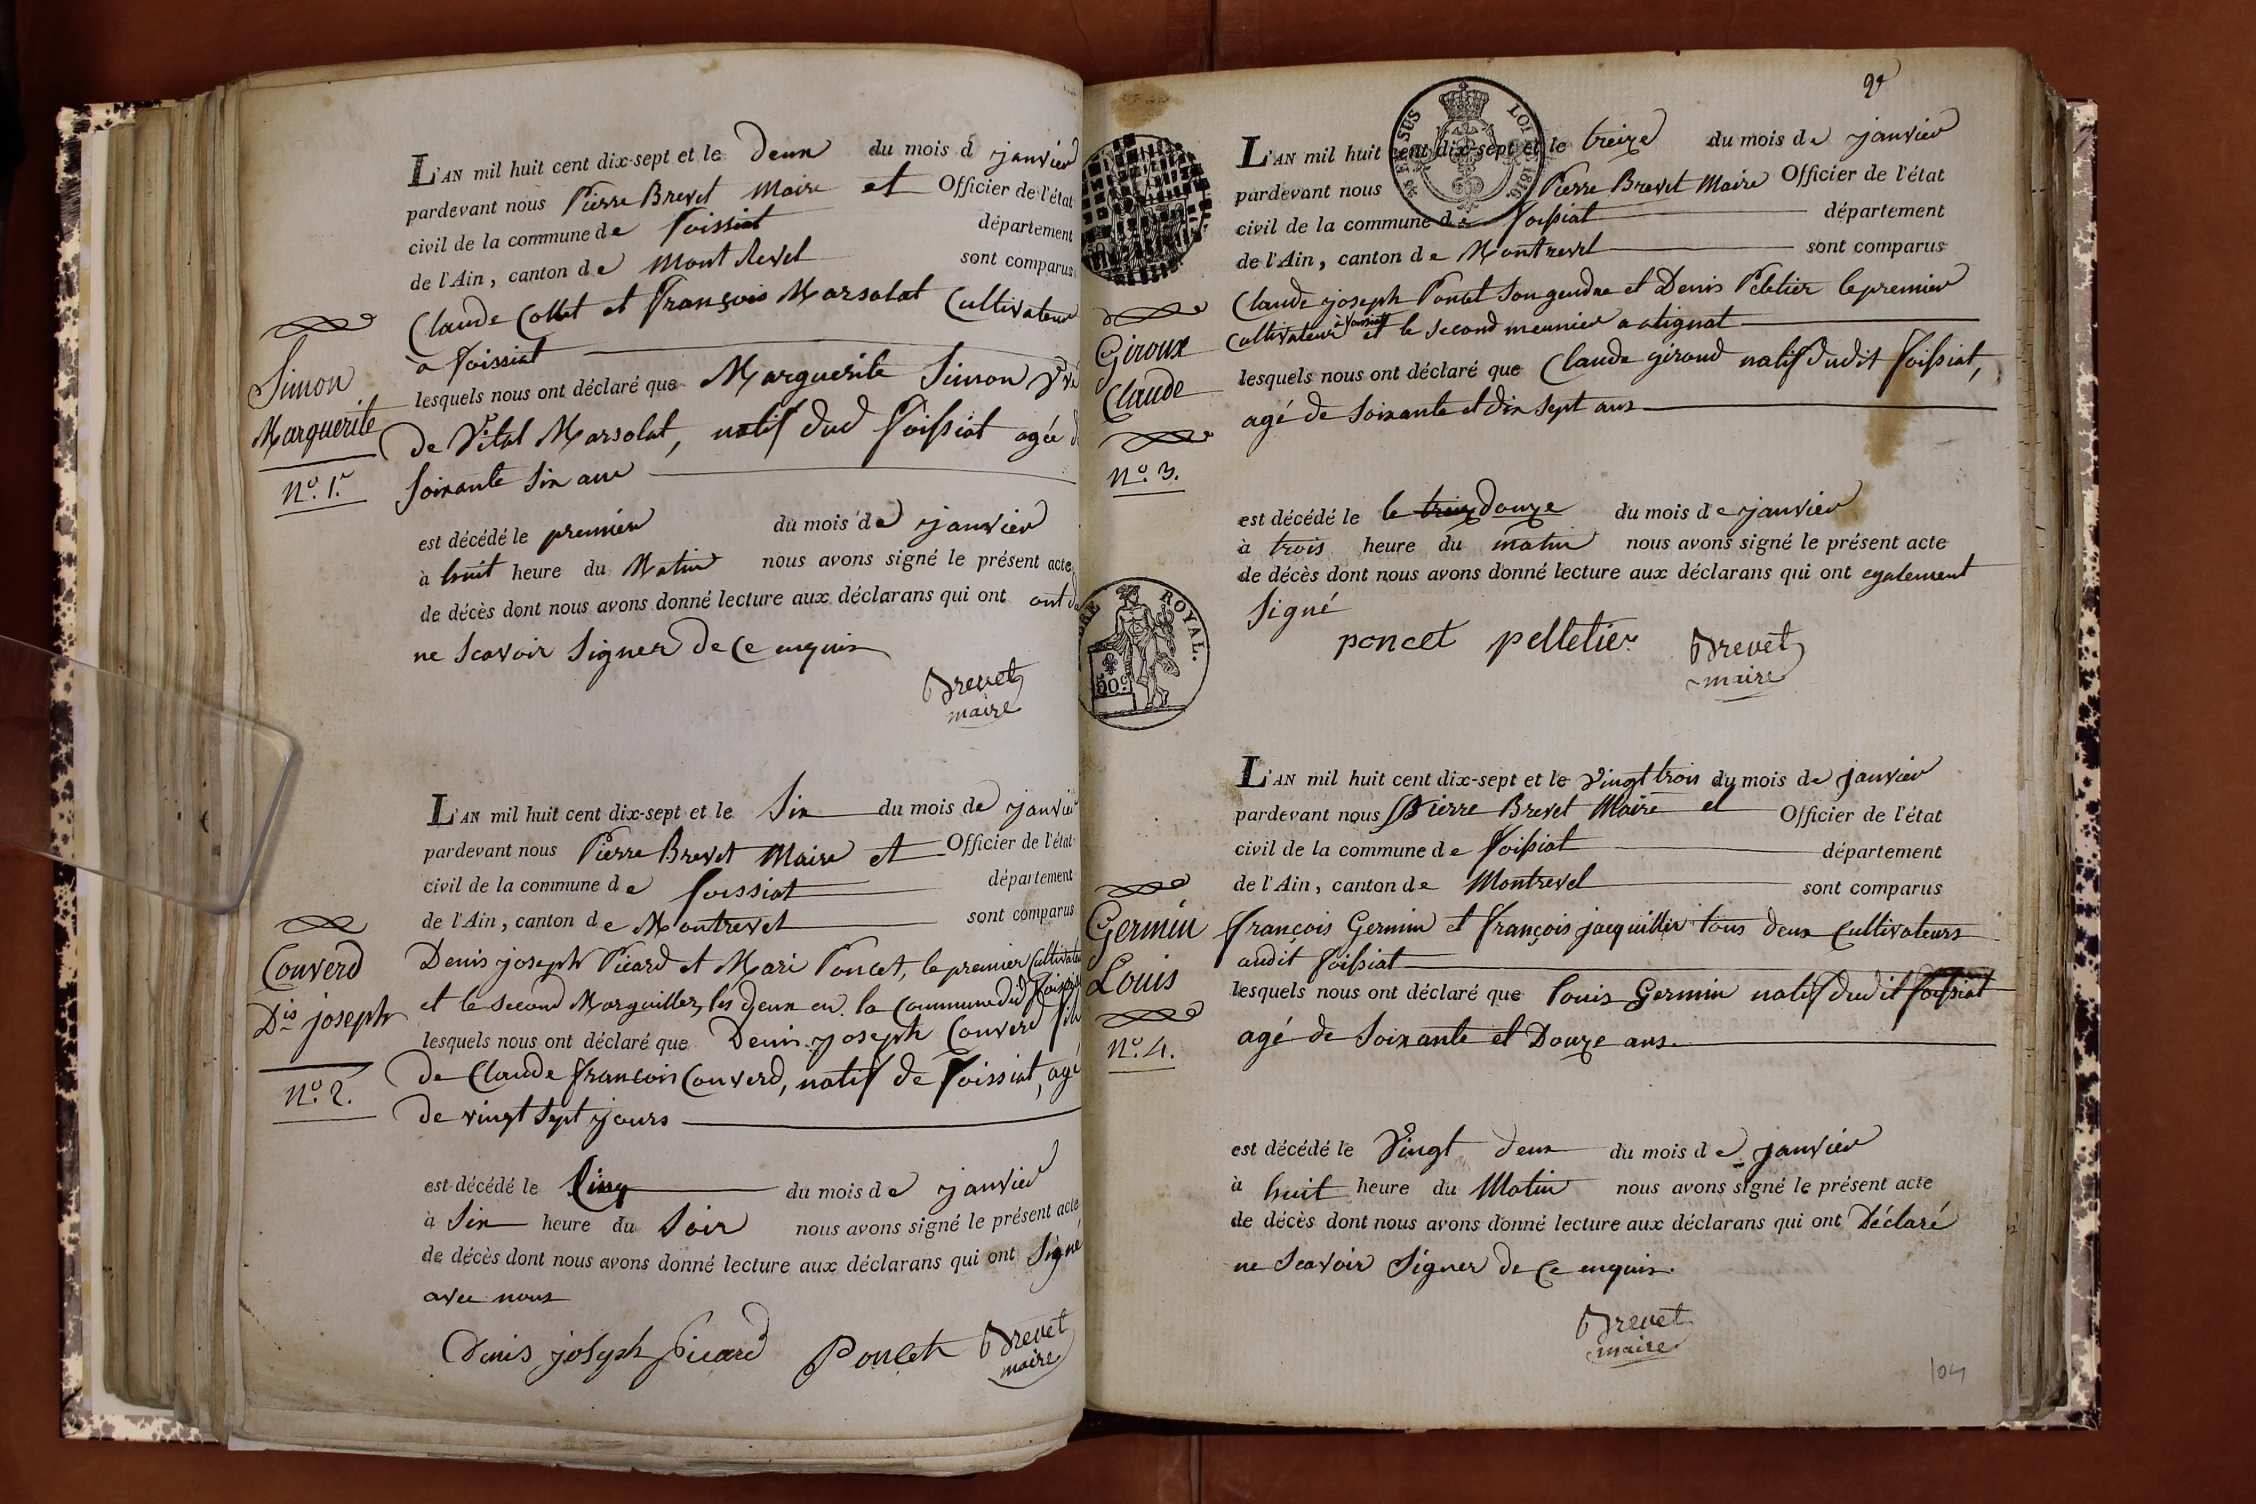 L'AN mil huit cent dix-sept et le deux du mois d janvier
pardevant nous Pierre Brevet Maire et Officier de l'état
civil de la commune de foissiat département
de l'Ain, canton de Mont Revel sont comparus
Claude Collet et françois Marsolat Cultivateur
à foissiat
lesquels nous ont déclaré que Marguerite Simon Vve
de Vital Marsolat, natif dud foissiat agée d
soixante six ans
Simon
Marguerite
N.º 1.r
est décédé le premier du mois de janvier
à huit heure du Matin nous avons signé le présent acte
de décès dont nous avons donné lecture aux déclarans qui ont ont de
ne scavoir signer de ce enquis
Brevet
maire
L'AN mil huit cent dix-sept et le Six du mois de janvier
pardevant nous Pierre Brevet Maire et Officier de l'état
civil de la commune de foissiat département
de l'Ain, canton de Montrevel sont comparus
Denis joseph Picard et Mari Poncet, le premier Cultivateu
et le second Marguiller, les deux en la Commune dud foissia
lesquels nous ont déclaré que Denis joseph Converd fils
de Claude françois Converd, natif de foissiat, agé
de vingt sept jours
Converd
Dis joseph
N.º 2.
est décédé le Cinq du mois de janvier
à Six heure du Soir nous avons signé le présent acte
de décès dont nous avons donné lecture aux déclarans qui ont Signé
avec nous
Denis joseph picard Poncet Brevet
maire
L'AN mil huit cent dix-sept et le treize du mois de janvier
pardevant nous Pierre Brevet Maire Officier de l'état
civil de la commune de foissiat département
de l'Ain, canton de Montrevel sont comparus
Claude joseph Poncet son gendre et Denis Peletier le premier
Cultivateur à foissiat et le second meunier a atignat
lesquels nous ont déclaré que Claude giroud natif dudit foissiat,
agé de soixante et dix sept ans
Giroux
Claude
N.º 3.
est décédé le le treiz douze du mois de janvier
à trois heure du matin nous avons signé le présent acte
de décès dont nous avons donné lecture aux déclarans qui ont egalement
signé
poncet pelletier Brevet
maire
ROYAL.
50c
L'AN mil huit cent dix-sept et le vingt trois du mois de janvier
pardevant nous Pierre Brevet Maire et Officier de l'état
civil de la commune de foissiat département
de l'Ain, canton de Montrevel sont comparus
françois Germin et françois jacquillier tous deux cultivateurs
audit foissiat
lesquels nous ont déclaré que louis Germin natif dudit foissiat
agé de soixante et Douze ans.
Germin
Louis
N.º 4.
est décédé le Vingt deux du mois de janvier
à huit heure du Matin nous avons signé le présent acte
de décès dont nous avons donné lecture aux déclarans qui ont Déclaré
ne scavoir signer de ce enquis.
Brevet
maire
104